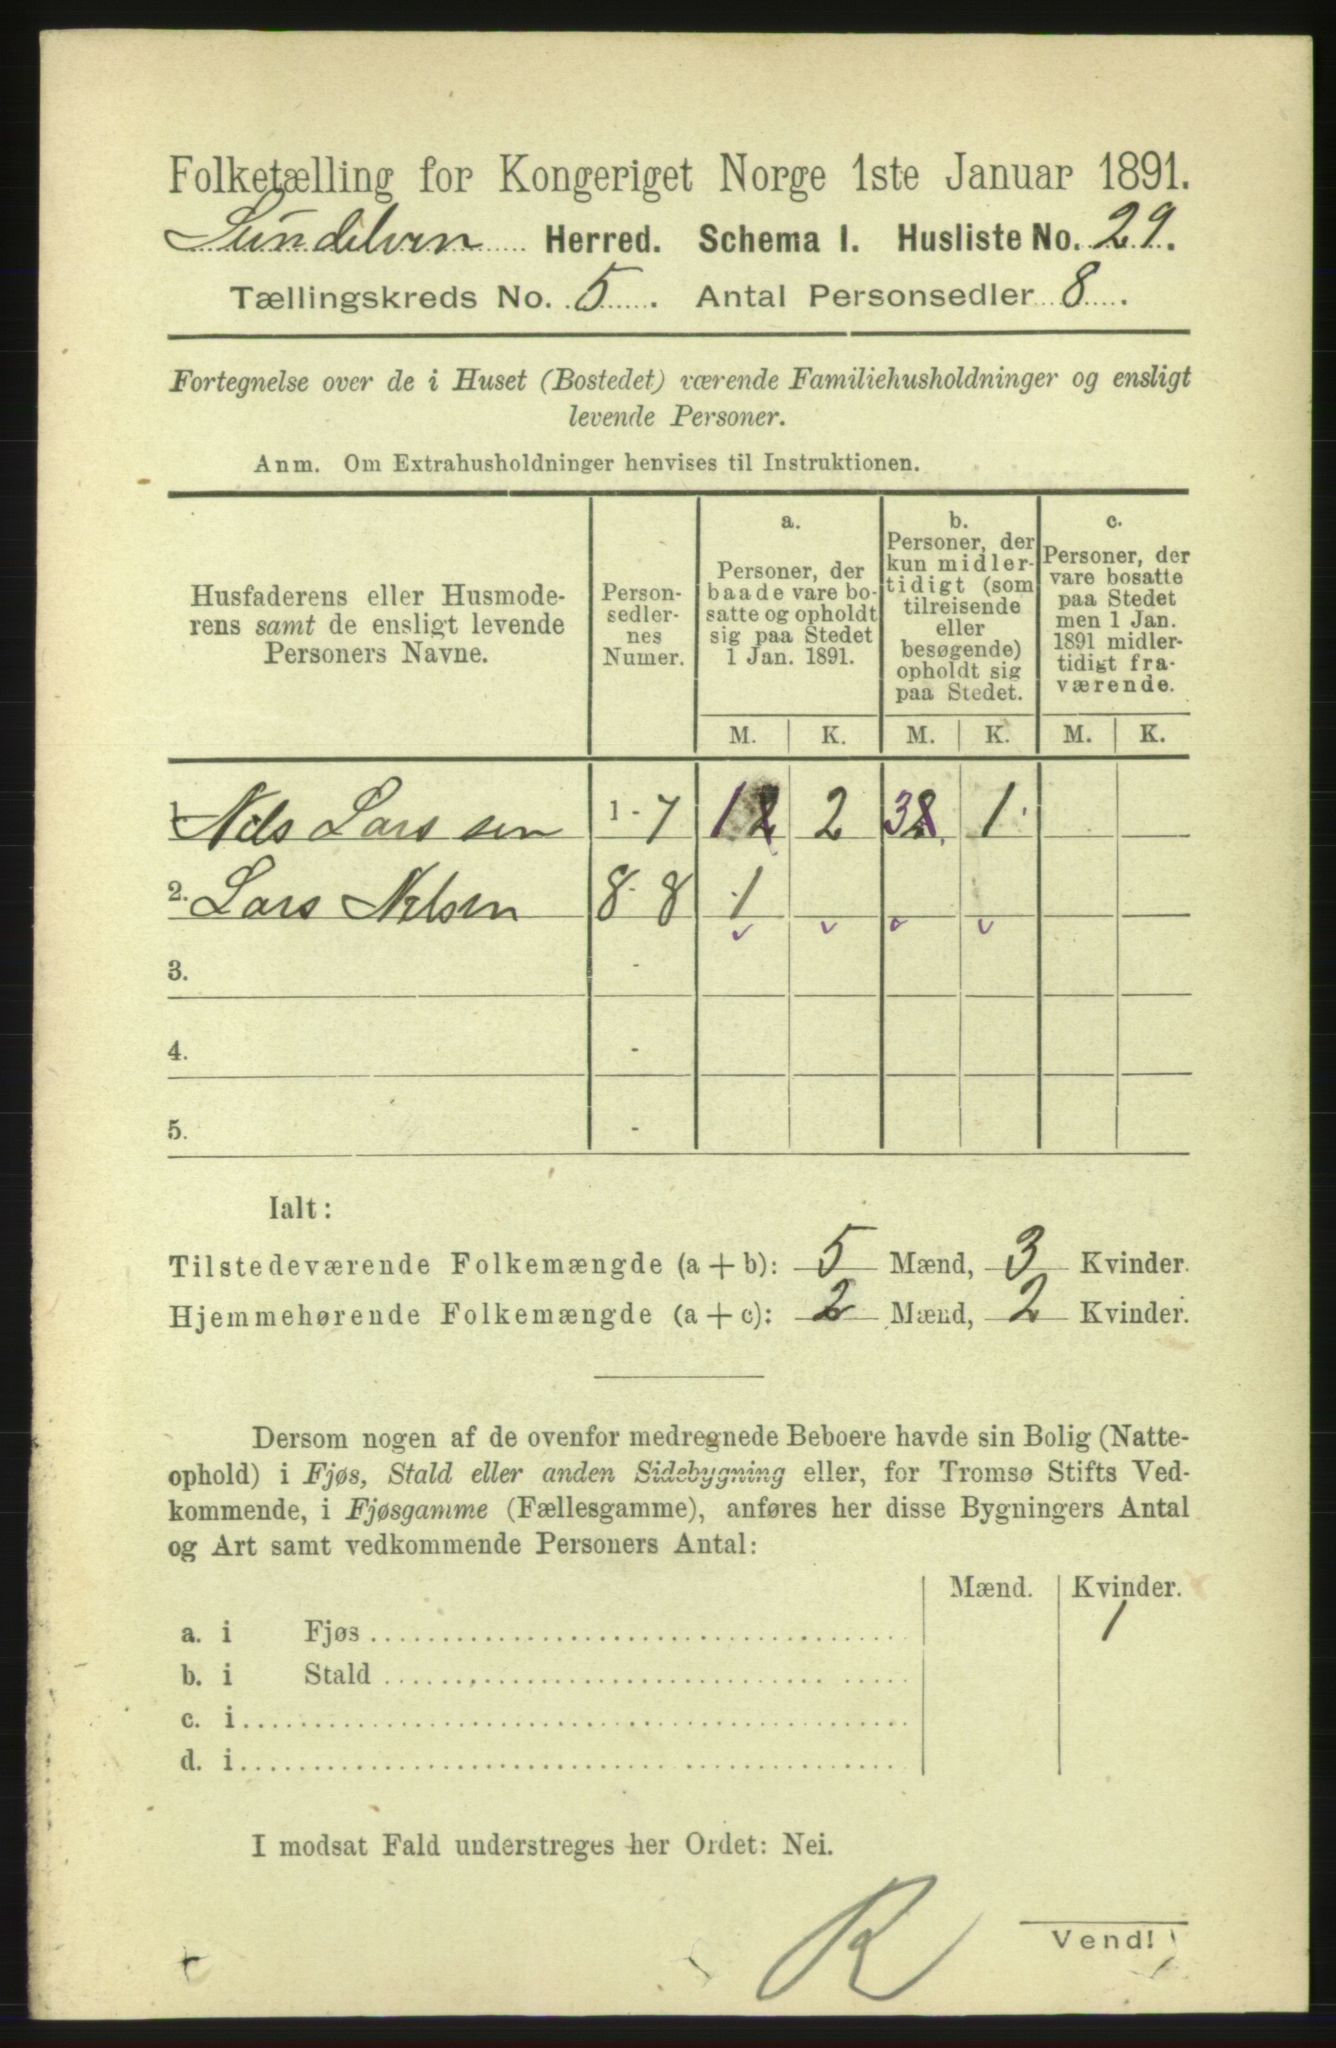 Folketælling for Kongeriget Norge 1ste Januar 1891.
Sundelven Herred. Schema I. Husliste No. 29.
Tællingskreds No. 5. Antal Personsedler 8.
Fortegnelse over de i Huset (Bostedet) værende Familiehusholdninger og ensligt
levende Personer.
Anm. Om Extrahusholdninger henvises til Instruktionen.
Husfaderens eller Husmode-
rens samt de ensligt levende
Personers Navne.
Person-
sedler-
nes
Numer.
a.
Personer, der
baade vare bo-
satte og opholdt
sig paa Stedet
1 Jan. 1891.
b.
Personer, der
kun midler-
tidigt (som
tilreisende
eller
besøgende)
opholdt sig
paa Stedet.
c.
Personer, der
vare bosatte
paa Stedet
men 1 Jan.
1891 midler-
tidigt fra-
værende.
M. K. M. K. M. K.
1. Nils Larssen 1 - 7 1 2 2 3 2 1
2. Lars Nelsen 8 - 8 1
3. -
4. -
5. -
Ialt:
Tilstedeværende Folkemængde (a + b): 5 Mænd, 3 Kvinder.
Hjemmehørende Folkemængde (a + c): 2 Mænd, 2 Kvinder.
Dersom nogen af de ovenfor medregnede Beboere havde sin Bolig (Natte-
ophold) i Fjøs, Stald eller anden Sidebygning eller, for Tromsø Stifts Ved-
kommende, i Fjøsgamme (Fællesgamme), anføres her disse Bygningers Antal
og Art samt vedkommende Personers Antal:
Mænd. Kvinder.
a. i Fjøs 1
b. i Stald
c. i
d. i
I modsat Fald understreges her Ordet: Nei.
R
Vend!